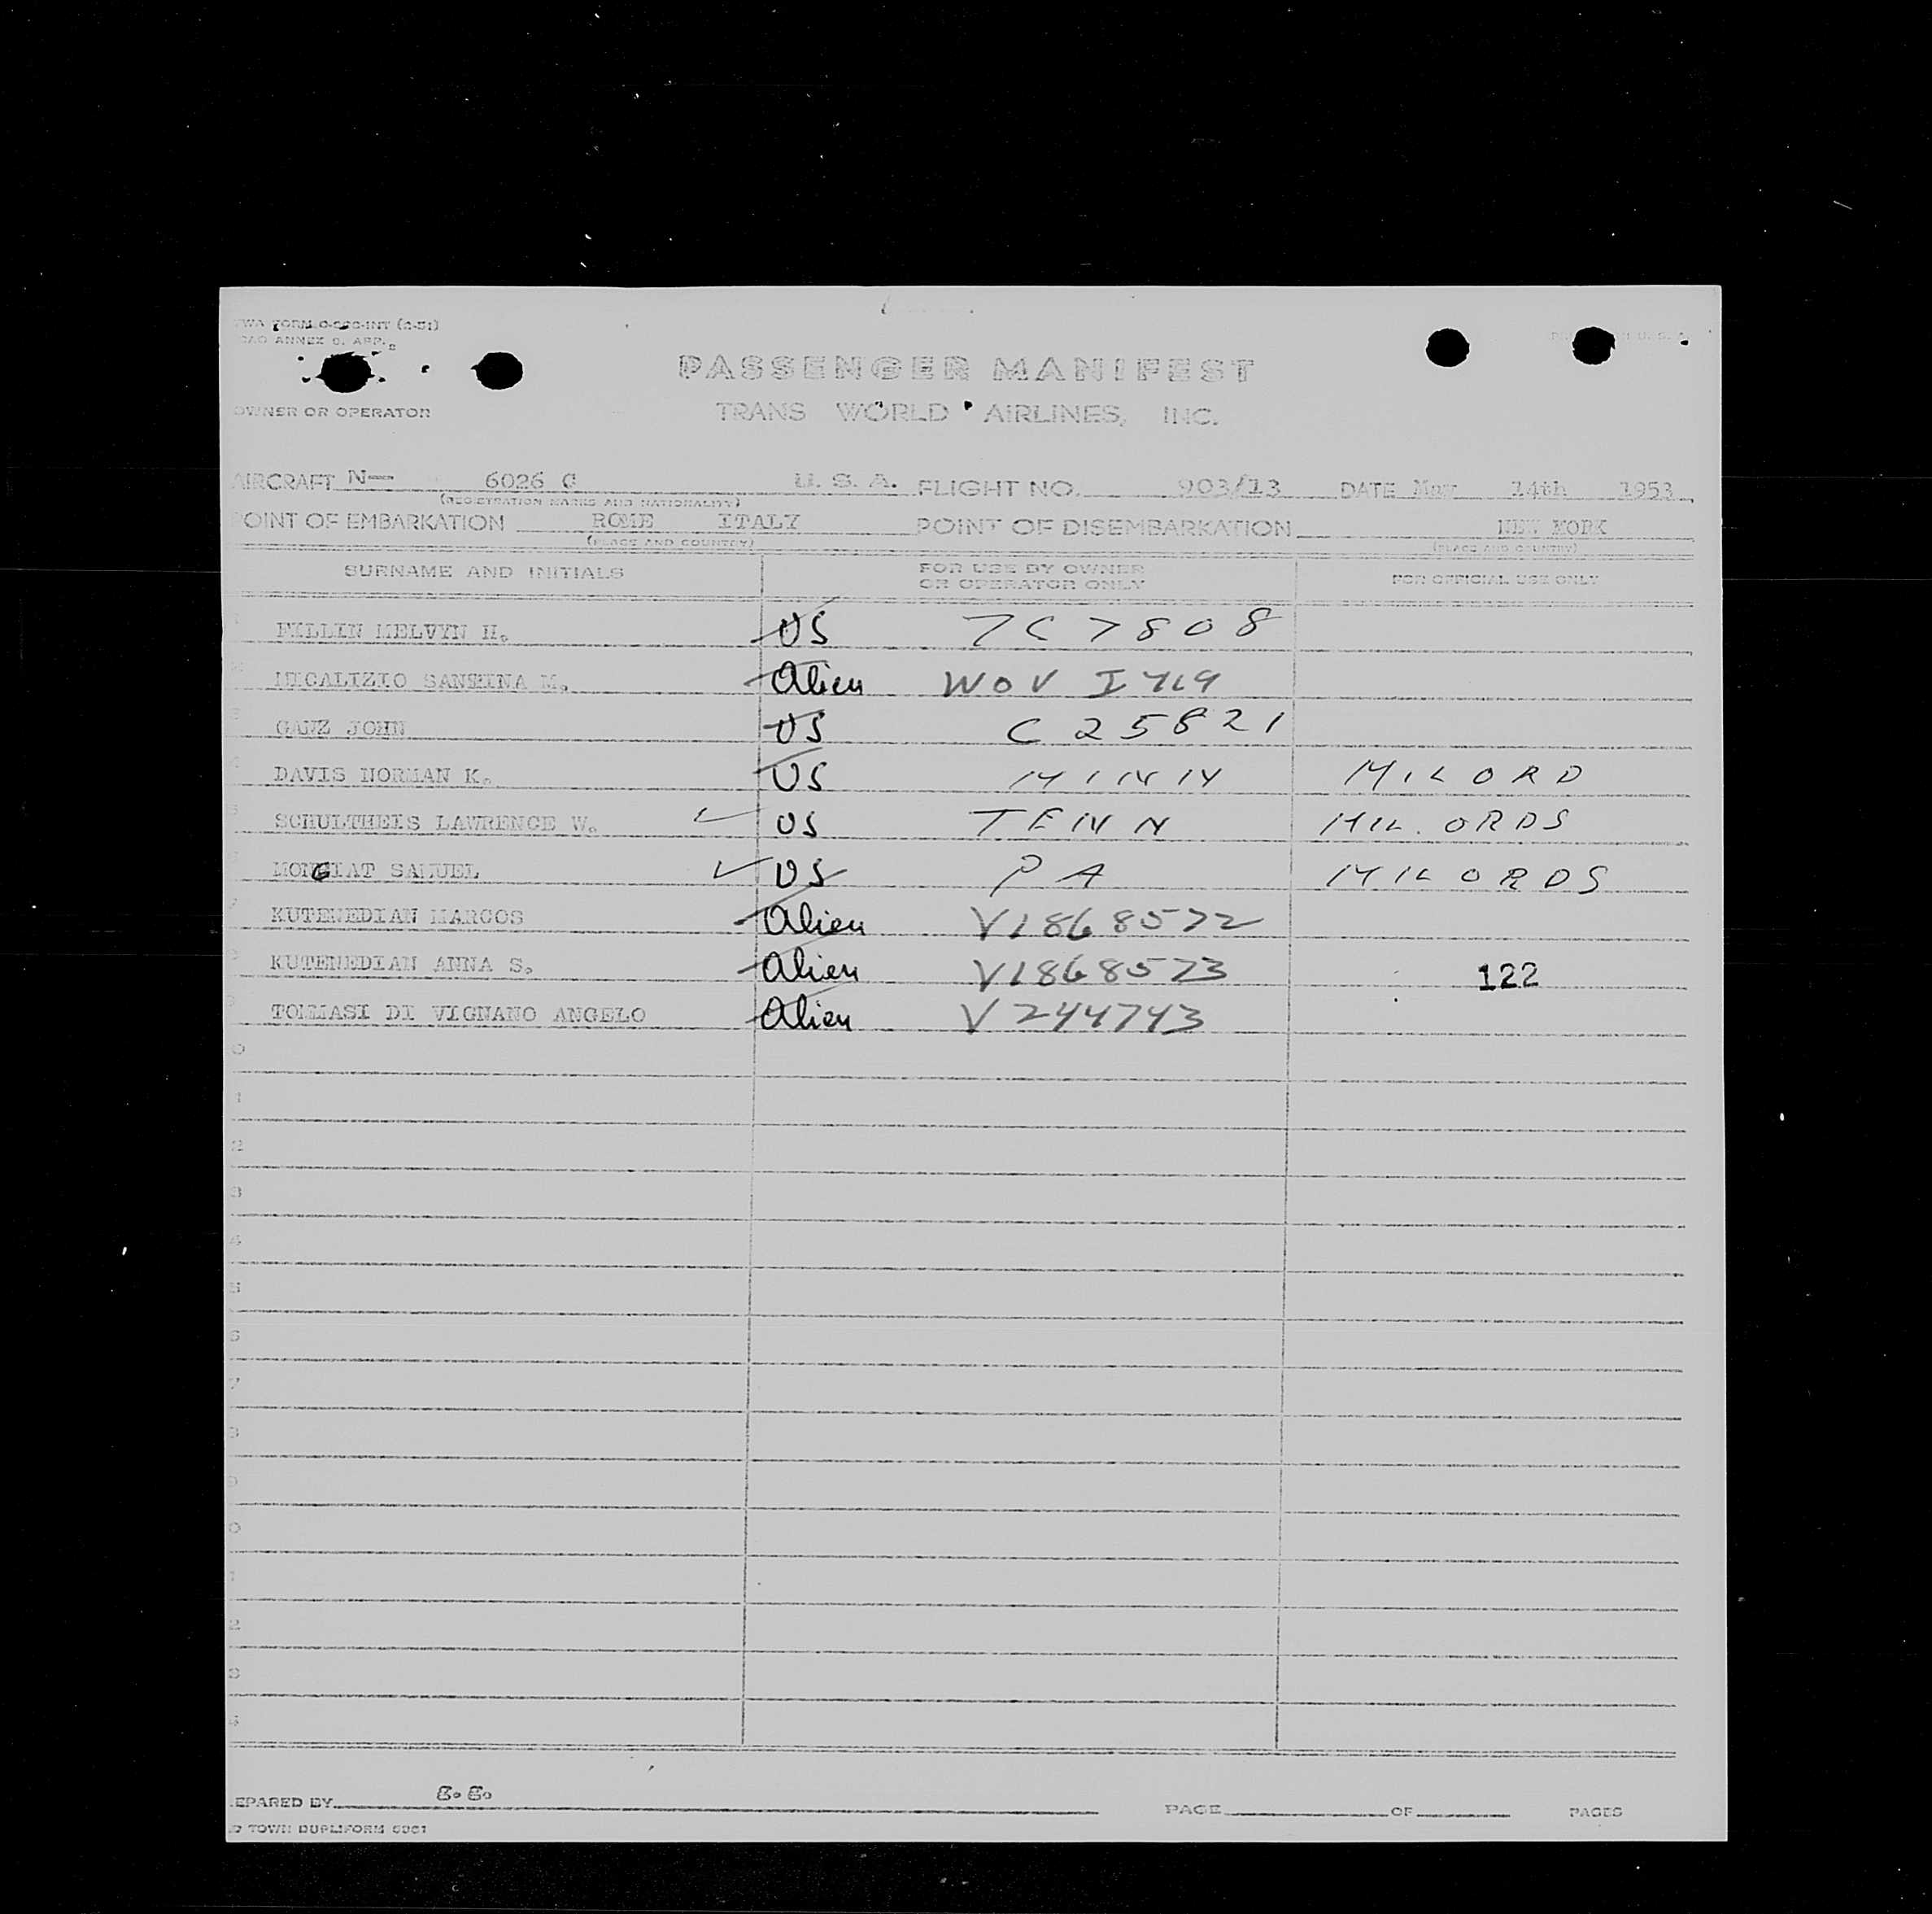 TWA FORM O-
ICAO ANNEX 9. APP.
PASSENGER MANIFEST
OWNER OR OPERATOR TRANS WORLD AIRLINES, INC.
AIRCRAFT N— 6026 C U. S. A. FLIGHT NO. 903/13 DATE May 14th 1953
(REGISTRATION MARKS AND NATIONALITY)
POINT OF EMBARKATION ROME ITALY POINT OF DISEMBARKATION NEW YORK
(PLACE AND COUNTRY) (PLACE AND COUNTRY)
SURNAME AND INITIALS FOR USE BY OWNER OR OPERATOR ONLY FOR OFFICIAL USE ONLY
MELVYN H. US 7C7808
MICALIZIO M. Alien WOV I
GANZ JOHN US C 25821
DAVIS NORMAN K. US MINN MIL ORD
SCHULTHEIS LAWRENCE W. US TENN MIL. ORDS
MONGIAT SAMUEL US PA MIL ORDS
KUTENEDIAN MARCOS Alien V1868572
KUTENEDIAN ANNA S. Alien V1868573 122
TOMMASI DI VIGNANO ANGELO Alien V244743
0
1
2
3
4
5
6
7
8
9
0
1
2
3
4
EPARED BY g. g. PAGE OF PAGES
TOWN DUPLIFORM